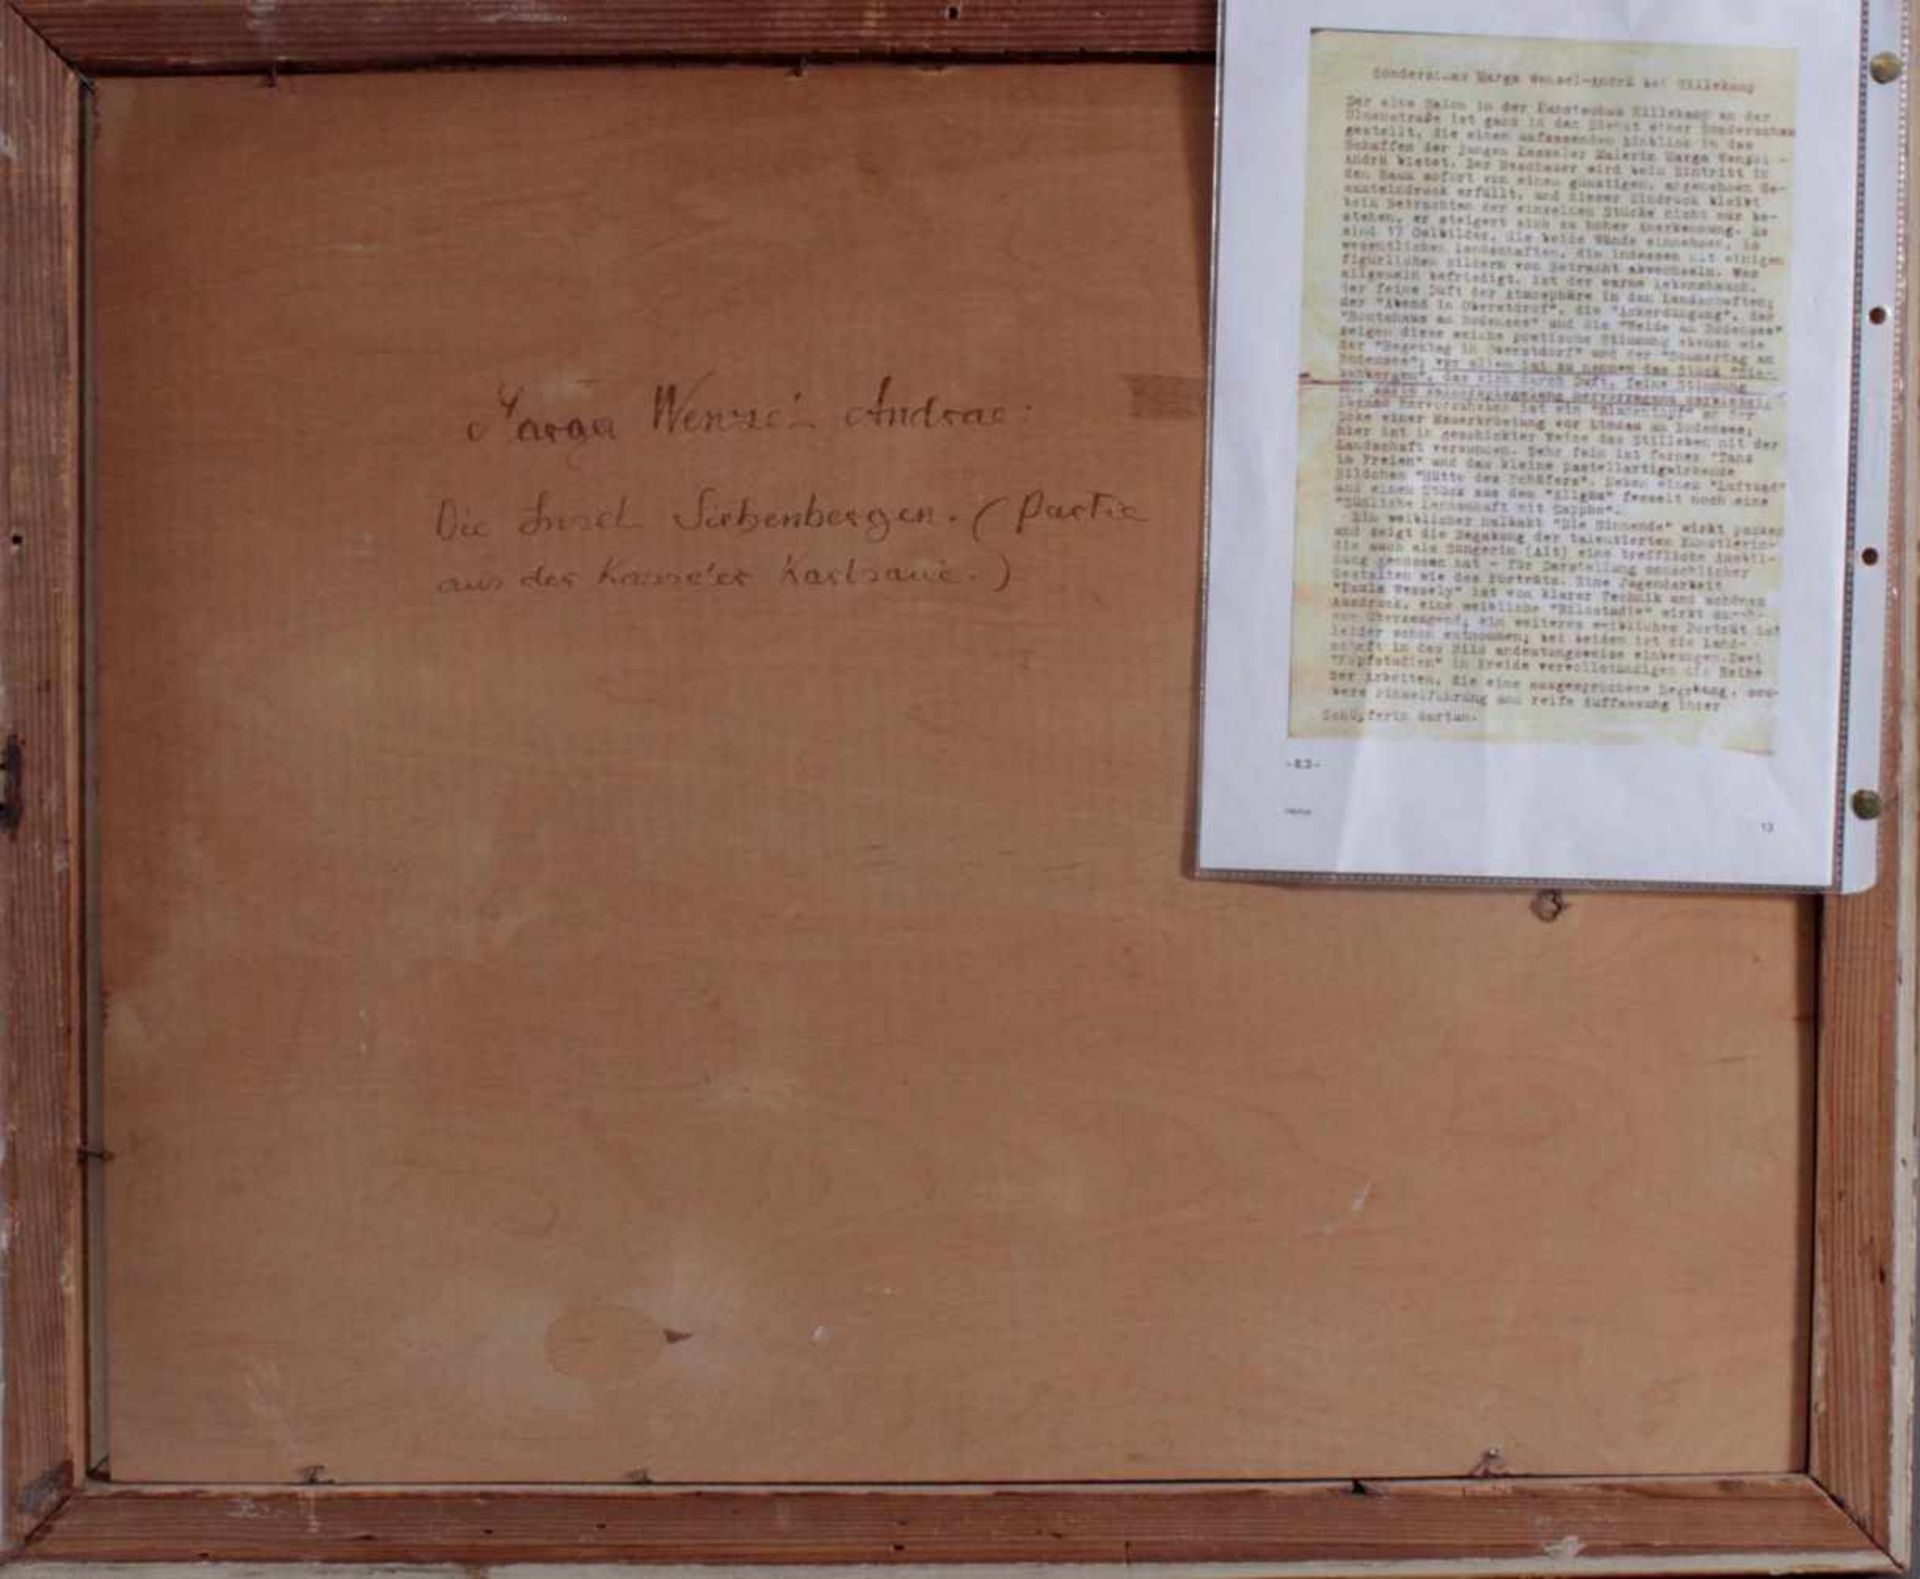 Marga Wenzel Andrae.
Die Insel Siebenbergen. (Partie
aus der Kasseler Karlsaue.)
Sonderschau Marga Wenzel-Andrä bei Hillekamp
Der eine Salon in der Kunstschau Hillekamp an der
ist ganz in den Dienst einer Sonderschau
gestellt, die einen umfassenden Einblick in das
Schaffen der jungen Kasseler Malerin Marga Wenzel-
Andrä bietet. Der Beschauer wird beim Eintritt in
den Raum sofort von einem günstigen, angenehmen Ge-
samteindruck erfüllt, und dieser Eindruck bleibt
beim Betrachten der einzelnen Stücke nicht nur be-
stehen, er steigert sich zu hoher Anerkennung. Es
sind 17 Oelbilder, die beide Wände einnehmen, im
wesentlichen Landschaften, die indessen mit einigen
figürlichen Bildern von Betracht abwechseln. Was
allgemein befriedigt, ist der warme Lebenshauch,
der feine Duft der Atmosphäre in den Landschaften;
der "Abend in Oberstdorf", die "Ackerdüngung", das
"Bootshaus am Bodensee" und die "Weide am Bodensee"
zeigen diese weiche poetische Stimmung ebenso wie
der "Regentag in Oberstdorf" und der "Sommertag am
Bodensee"; vor allem hat zu nennen das Stück "Sie-
benbergen", das sich durch Duft, feine Stimmung
und hervorragend
Ebenso hervorzuheben ist ein "Blumentopf" an der
Ecke einer Mauerbrüstung vor Lindau am Bodensee;
hier ist in geschickter Weise das Stilleben mit der
Landschaft verbunden. Sehr fein ist ferner "Tanz
im Freien" und das kleine pastellartigwirkende
Bildchen "Hütte des Schäfers". Neben einem "Luftbad"
und einem Stück aus dem "Allgäu" fesselt noch eine
"Südliche Landschaft mit Sappho".
Ein weiblicher Halbakt "Die Sinnende" wirkt packend
und zeigt die Begabung der talentierten Künstlerin-
die auch als Sängerin (Alt) eine treffliche Ausbil-
dung genossen hat - für Darstellung menschlicher
Gestalten wie des Porträts. Eine Jugendarbeit
"Paula Wessely" ist von klarer Technik und schönem
Ausdruck, eine weibliche "Bildstudie" wirkt
überzeugend; ein weiteres weibliches Porträt ist
leider schon entnommen; bei beiden ist die Land-
schaft in das Bild andeutungsweise einbezogen. Zwei
"Kopfstudien" in Kreide vervollständigen die Reihe
der Arbeiten, die eine ausgesprochene Begabung, sau-
bere Pinselführung und reife Auffassung ihrer
Schöpferin dartun.
- 8.3 -
13